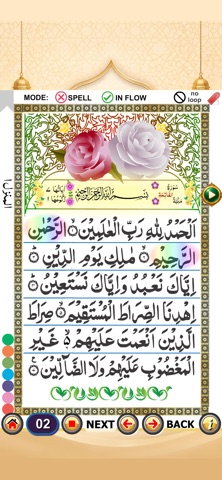 MODE: SPELL IN FLOW no loop
المنزل ١
سورة
بِسْمِ اللهِ الرَّحْمٰنِ الرَّحِيْمِ
اَلْحَمْدُ لِلّٰهِ رَبِّ الْعٰلَمِيْنَ ۝ الرَّحْمٰنِ
الرَّحِيْمِ ۝ مٰلِكِ يَوْمِ الدِّيْنِ ۝
اِيَّاكَ نَعْبُدُ وَاِيَّاكَ نَسْتَعِيْنُ ۝
اِهْدِنَا الصِّرَاطَ الْمُسْتَقِيْمَ ۝ صِرَاطَ
الَّذِيْنَ اَنْعَمْتَ عَلَيْهِمْ ۝ غَيْرِ
الْمَغْضُوْبِ عَلَيْهِمْ وَلَا الضَّآلِّيْنَ ۝
02 NEXT BACK i